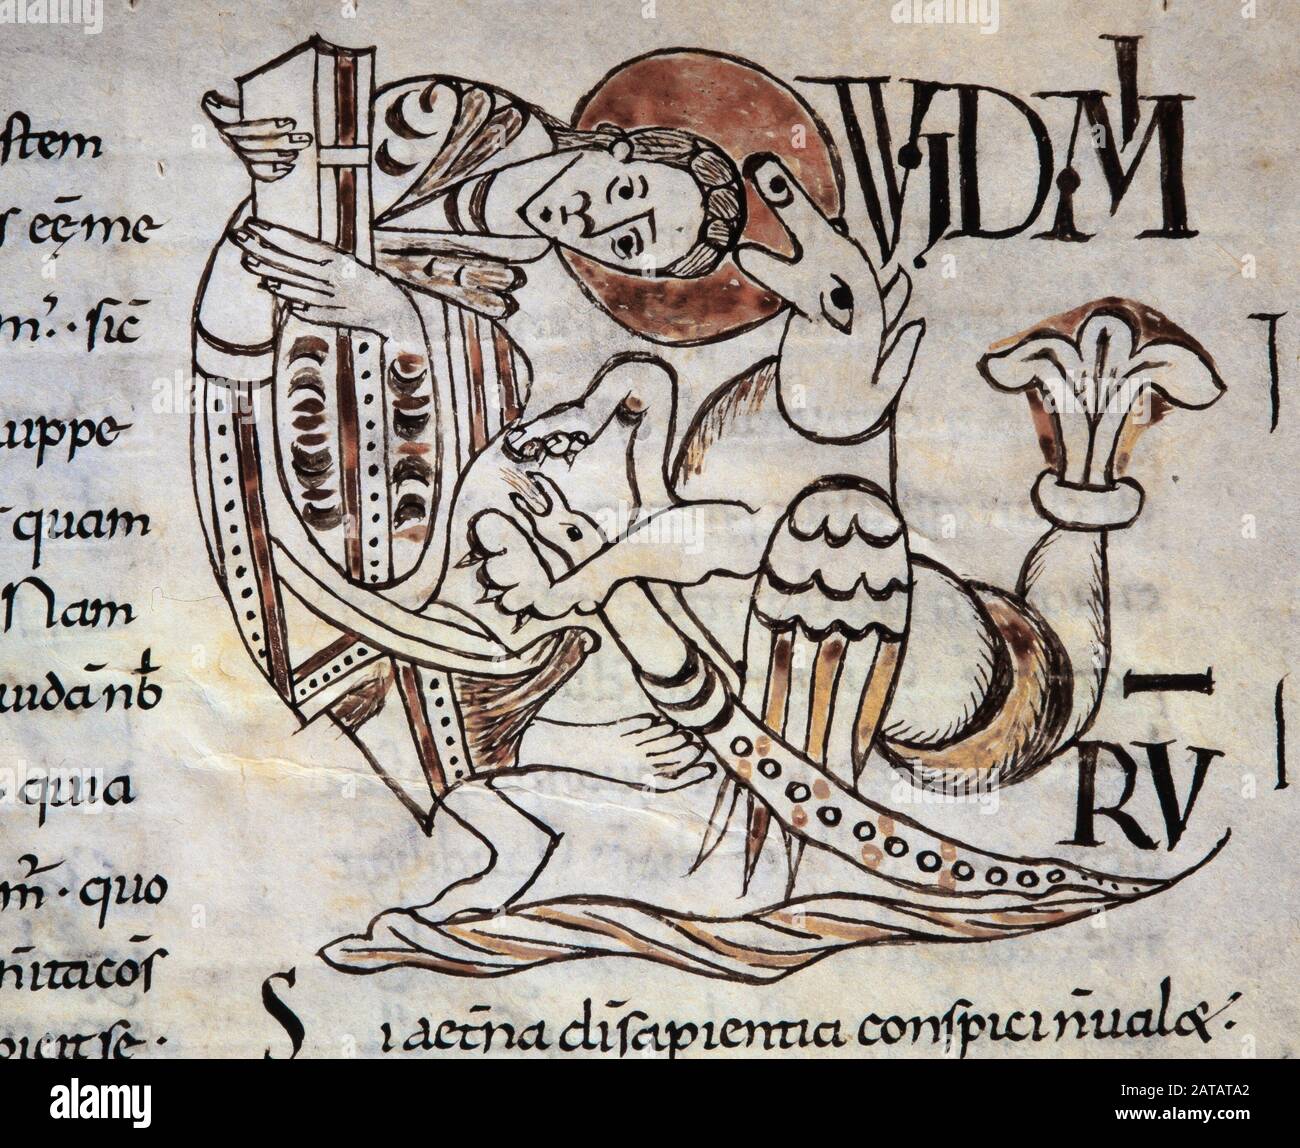 stem
s eȩ̄me
m̄᾽. · sic̄
uippe
quam
Nam
iudān b̄
quia
m̄ · quo
n̄itacōs
pient se ·
VIDIM
RV̄
Si aet̄na dī sapientia conspici n̄ ualet ·
alamy
Image ID: 2ATATA2
www.alamy.com